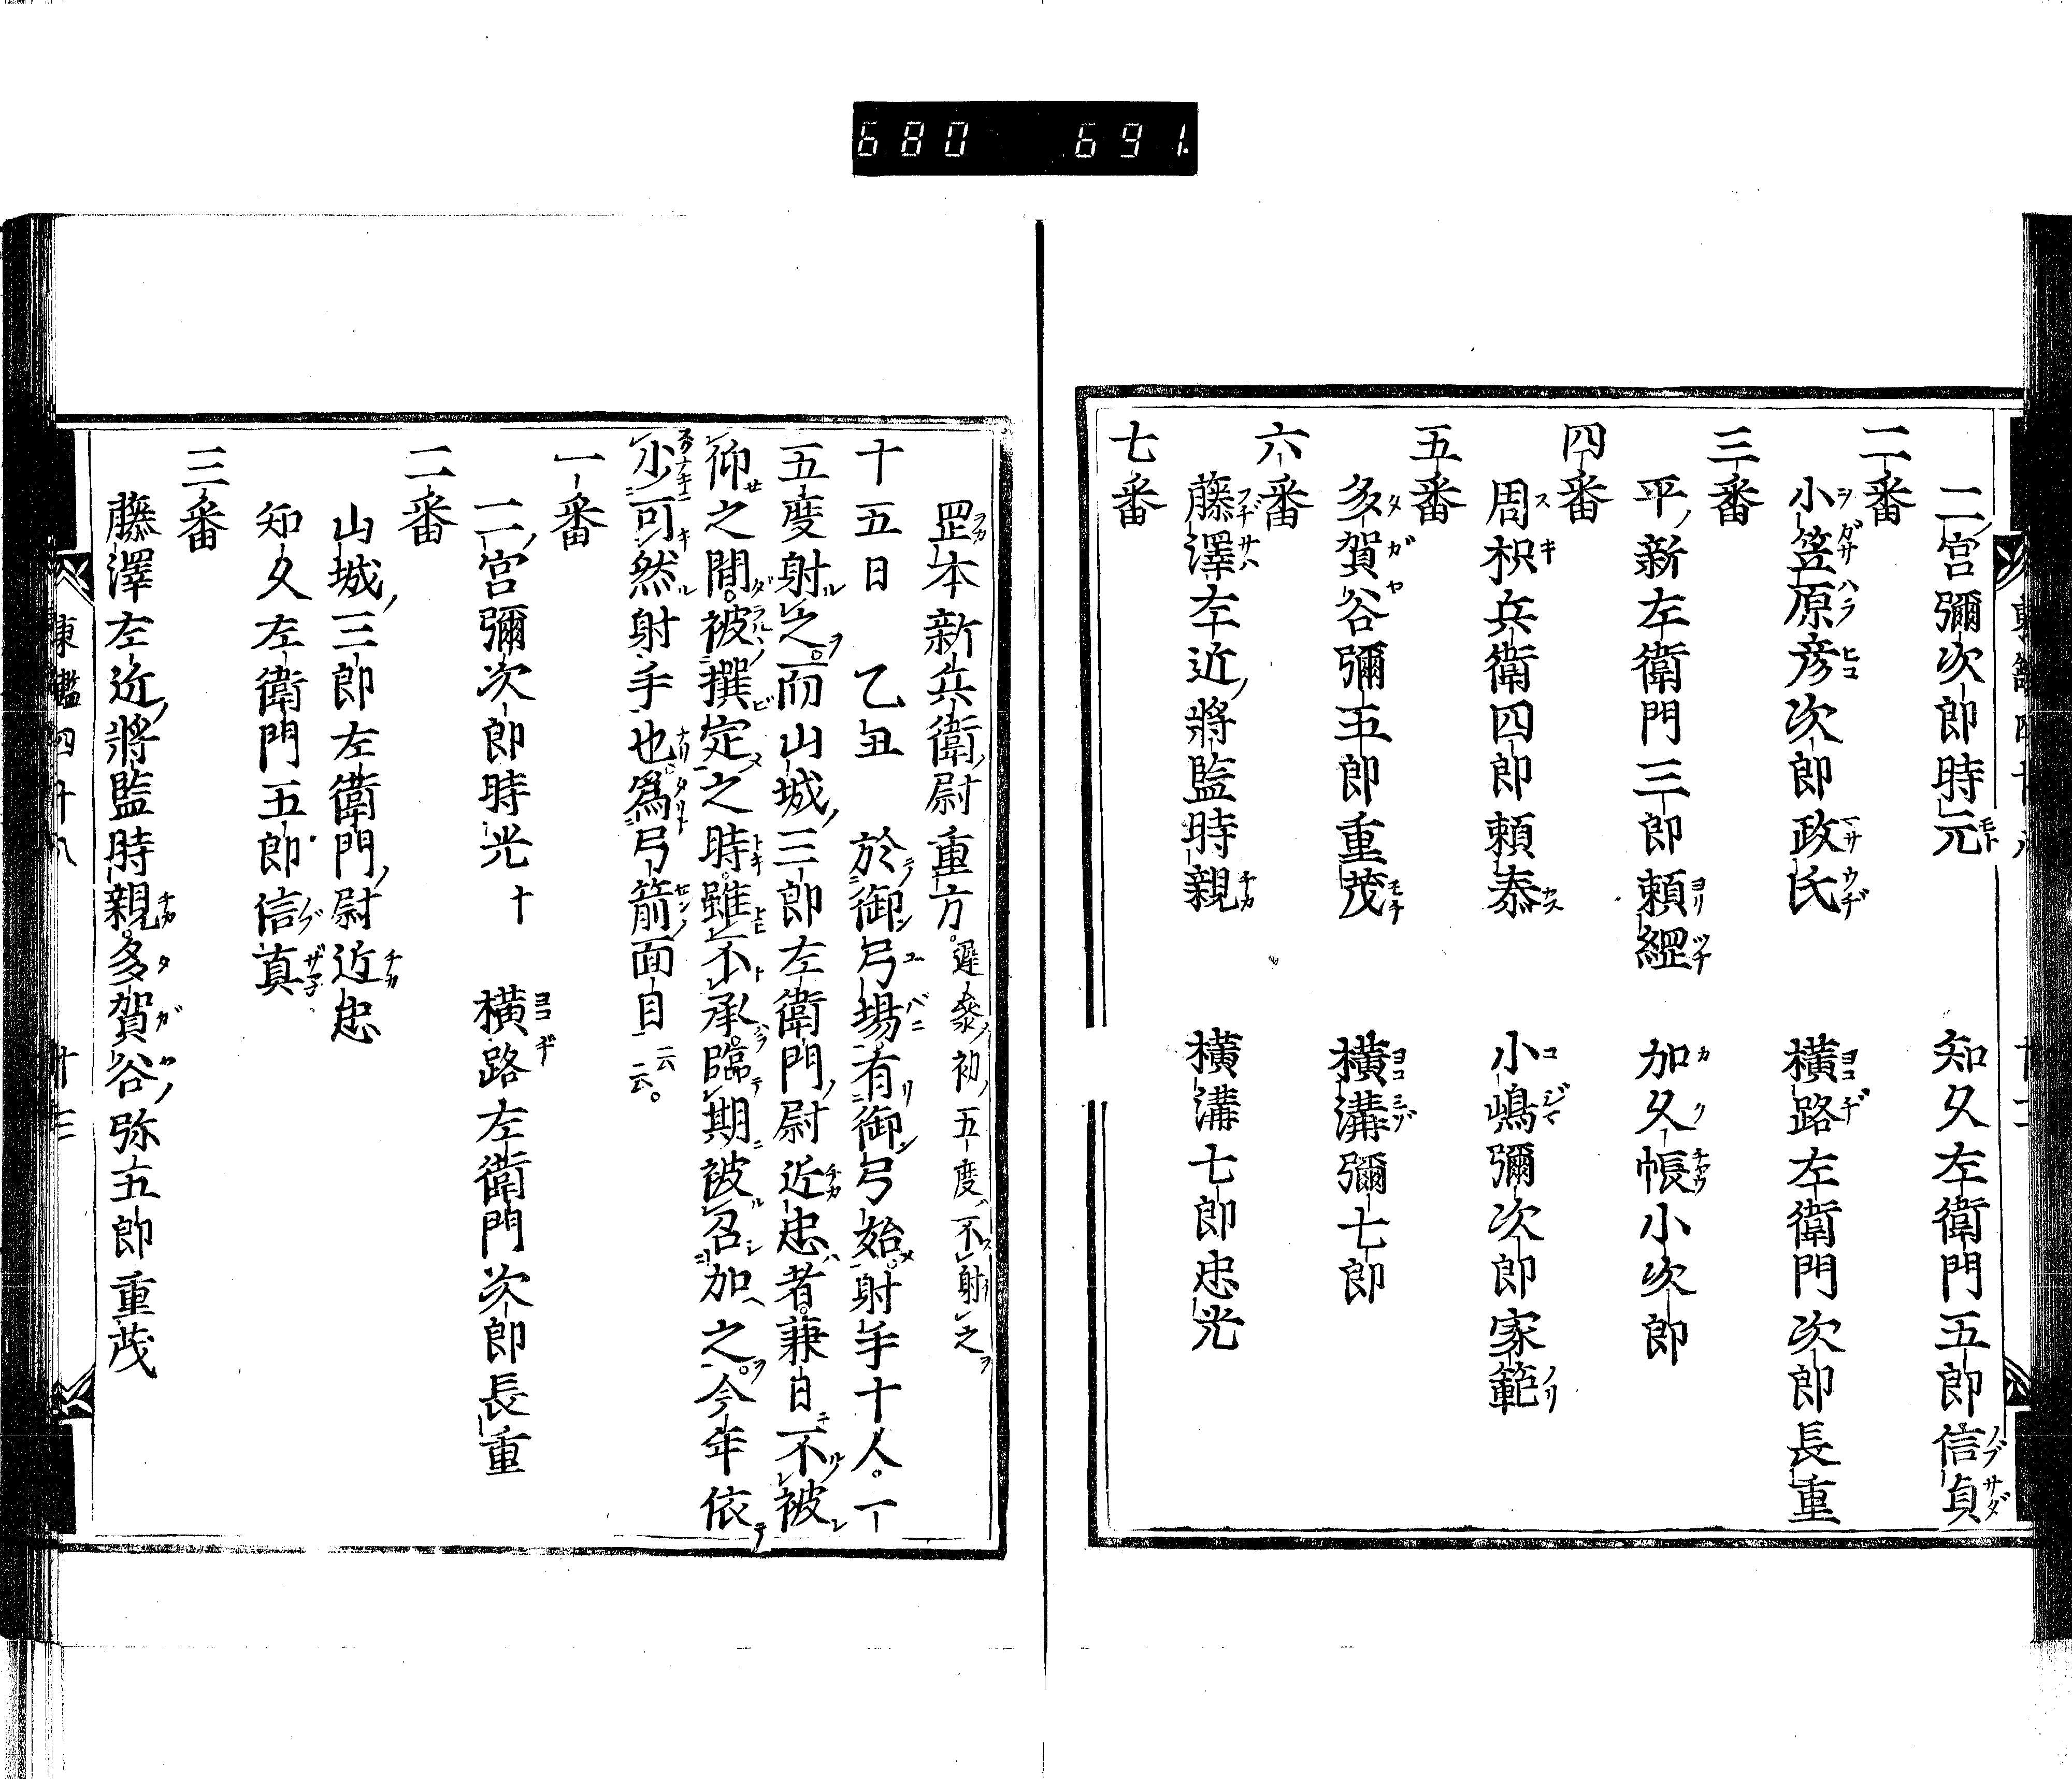 680 691.
二宮彌次郎時元 知久左衛門五郎信貞
二番
小笠原彦次郎政氏 横路左衛門次郎長重
三番
平新左衛門三郎頼綱 加久帳小次郎
四番
周枳兵衛四郎頼泰 小嶋彌次郎家範
五番
多賀谷彌五郎重茂 横溝彌七郎
六番
藤澤左近將監時親 横溝七郎忠光
七番
罡本新兵衛尉重方。遲參初五度不射之
十五日 乙丑 於御弓場。有御弓始。射手十人。一
五度射之。而山城三郎左衛門尉近忠者。兼日不被
仰之間。被撰定之時。雖不承。臨期被召加之。今年依
少可然射手也。爲弓箭面目云云。
一番
二宮彌次郎時光 横路左衛門次郎長重
二番
山城三郎左衛門尉近忠
知久左衛門五郎信真
三番
藤澤左近將監時親。多賀谷弥五郎重茂
東鑑四十八 十三